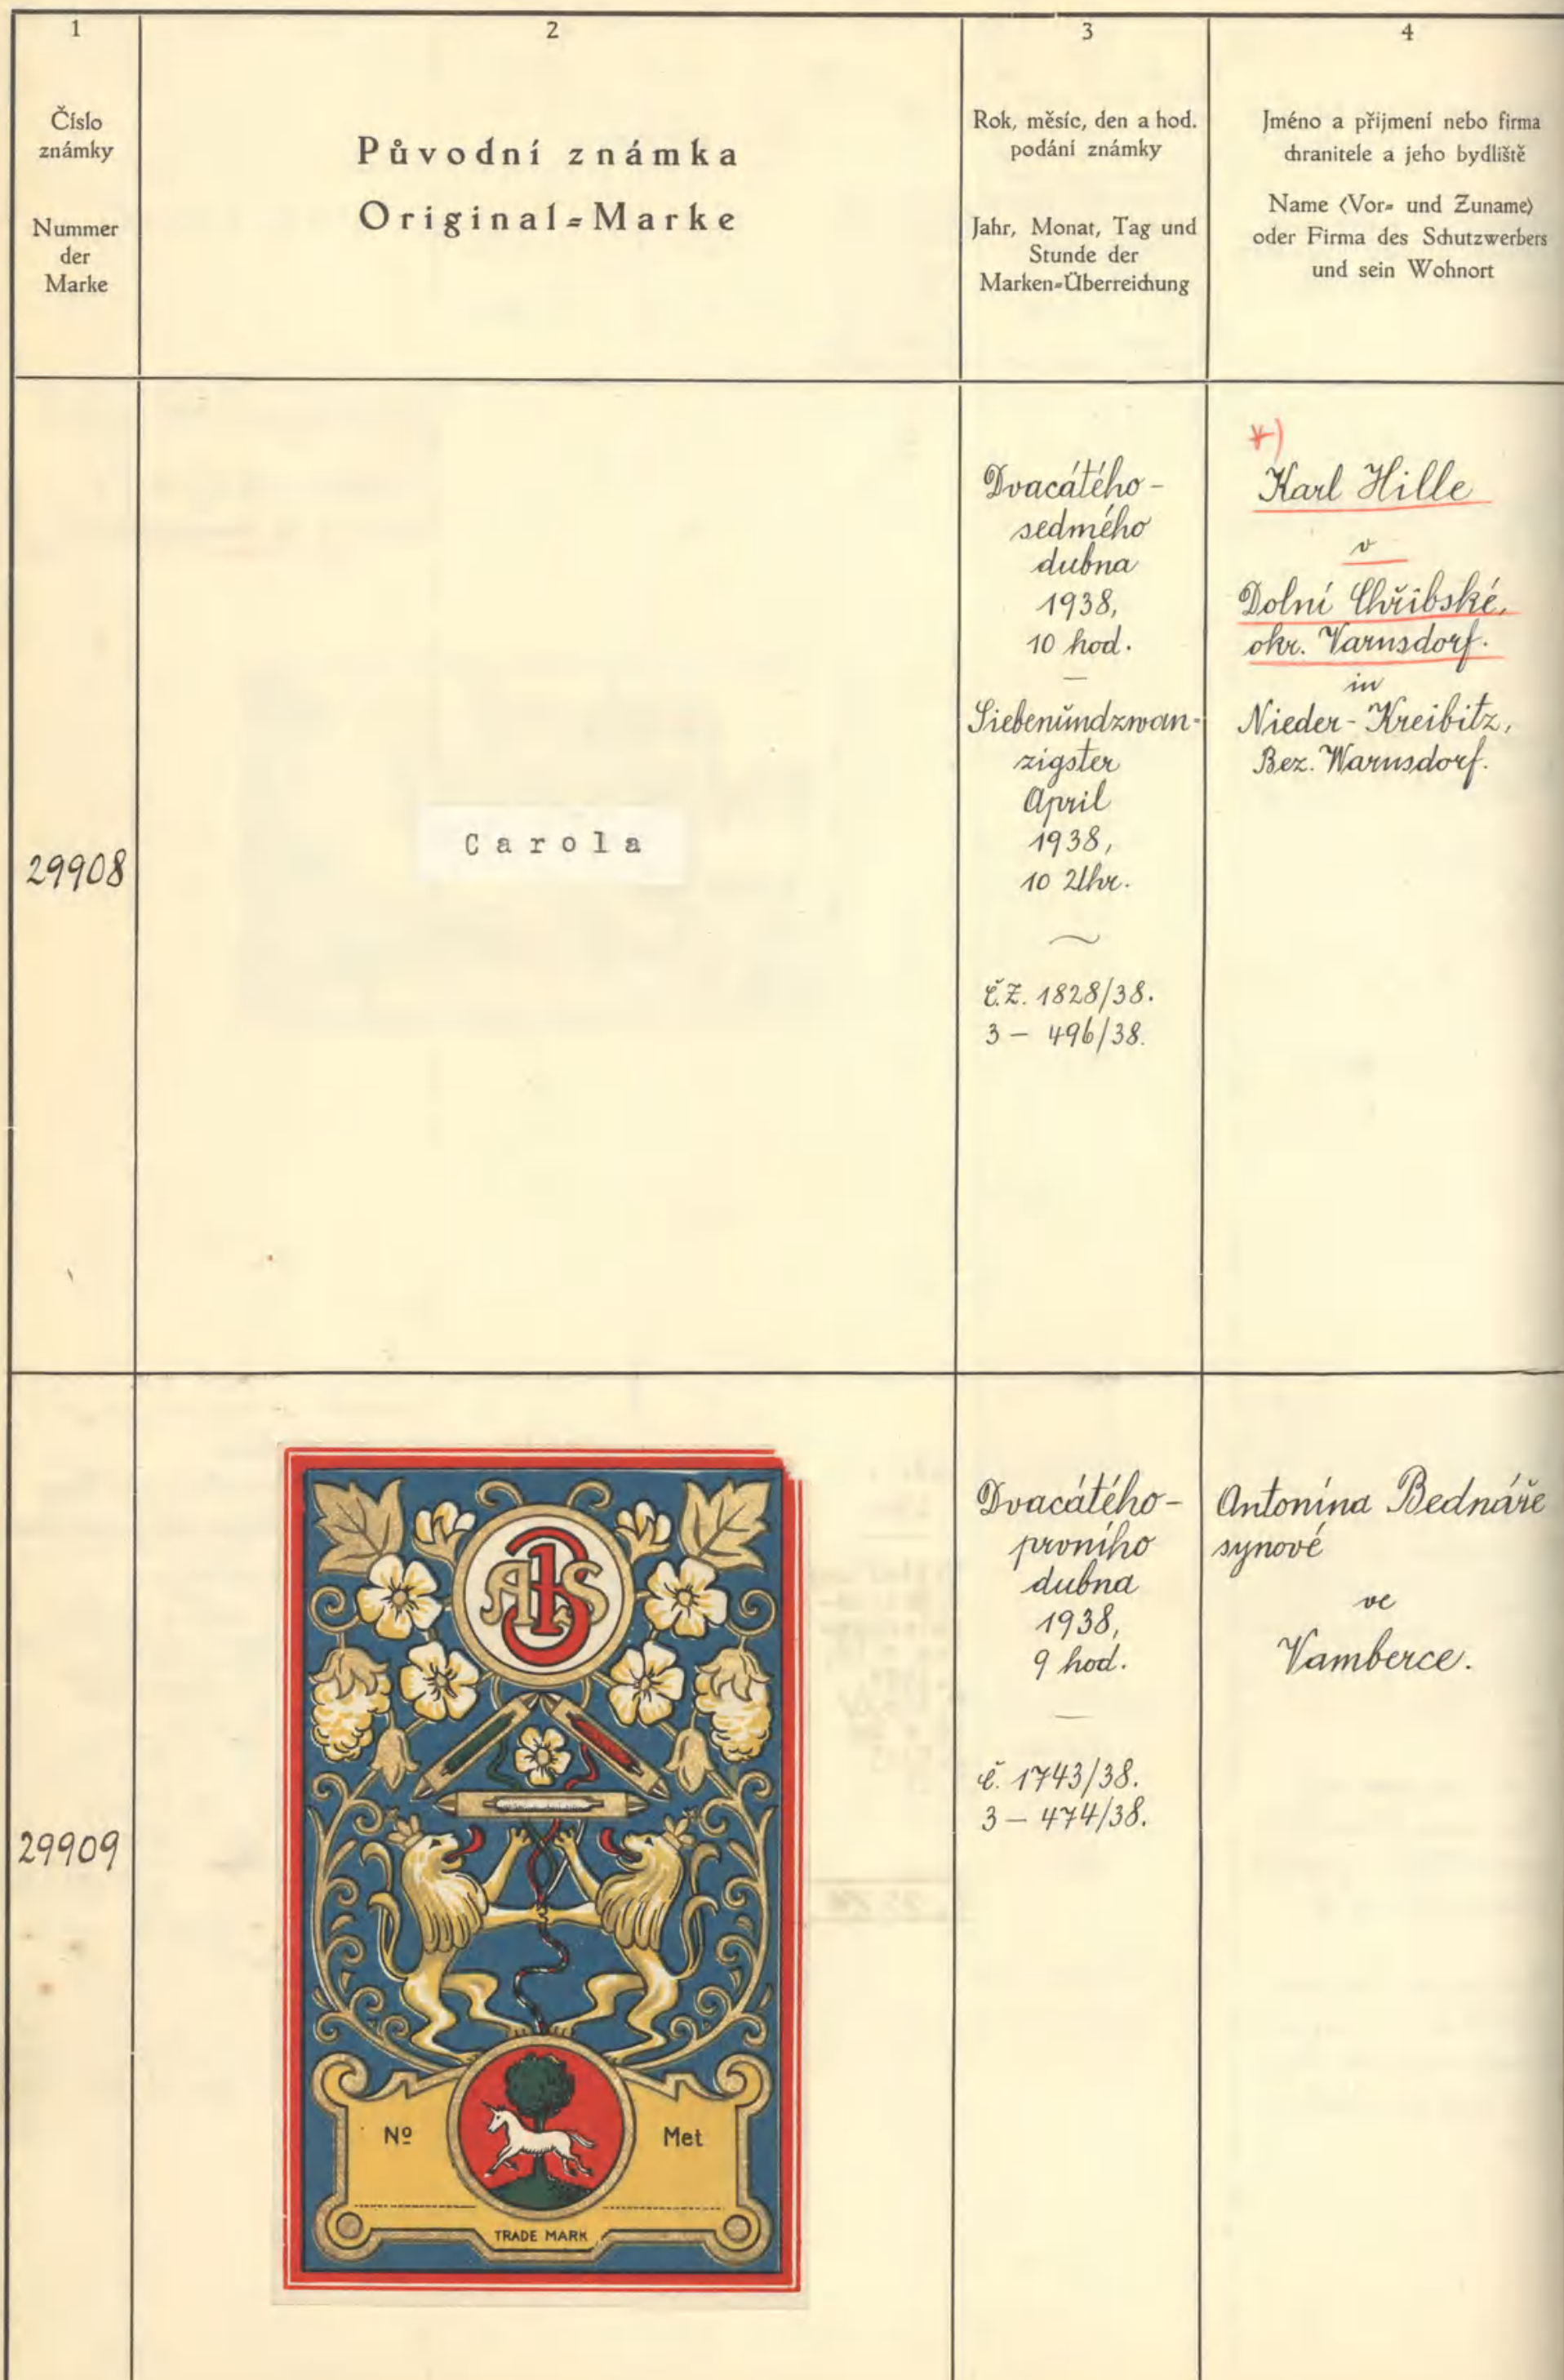 1
Číslo
známky
Nummer
der
Marke
2
Původní známka
Original=Marke
3
Rok, měsíc, den a hod.
podání známky
Jahr, Monat, Tag und
Stunde der
Marken=Überreichung
4
Jméno a přijmení nebo firma
chranitele a jeho bydliště
Name (Vor= und Zuname)
oder Firma des Schutzwerbers
und sein Wohnort
29908
Carola
Dvacátého-
sedmého
dubna
1938,
10 hod.
Siebenundzwan-
zigster
April
1938,
10 Uhr.
Č.Z. 1828/38.
3 – 496/38.
*)
Karl Hille
v
Dolní Chřibské,
okr. Varnsdorf.
in
Nieder-Kreibitz,
Bez. Warnsdorf.
29909
ABS
Nº
Met
TRADE MARK
Dvacátého-
prvního
dubna
1938,
9 hod.
č. 1743/38.
3 – 474/38.
Antonína Bednáře
synové
ve
Vamberce.